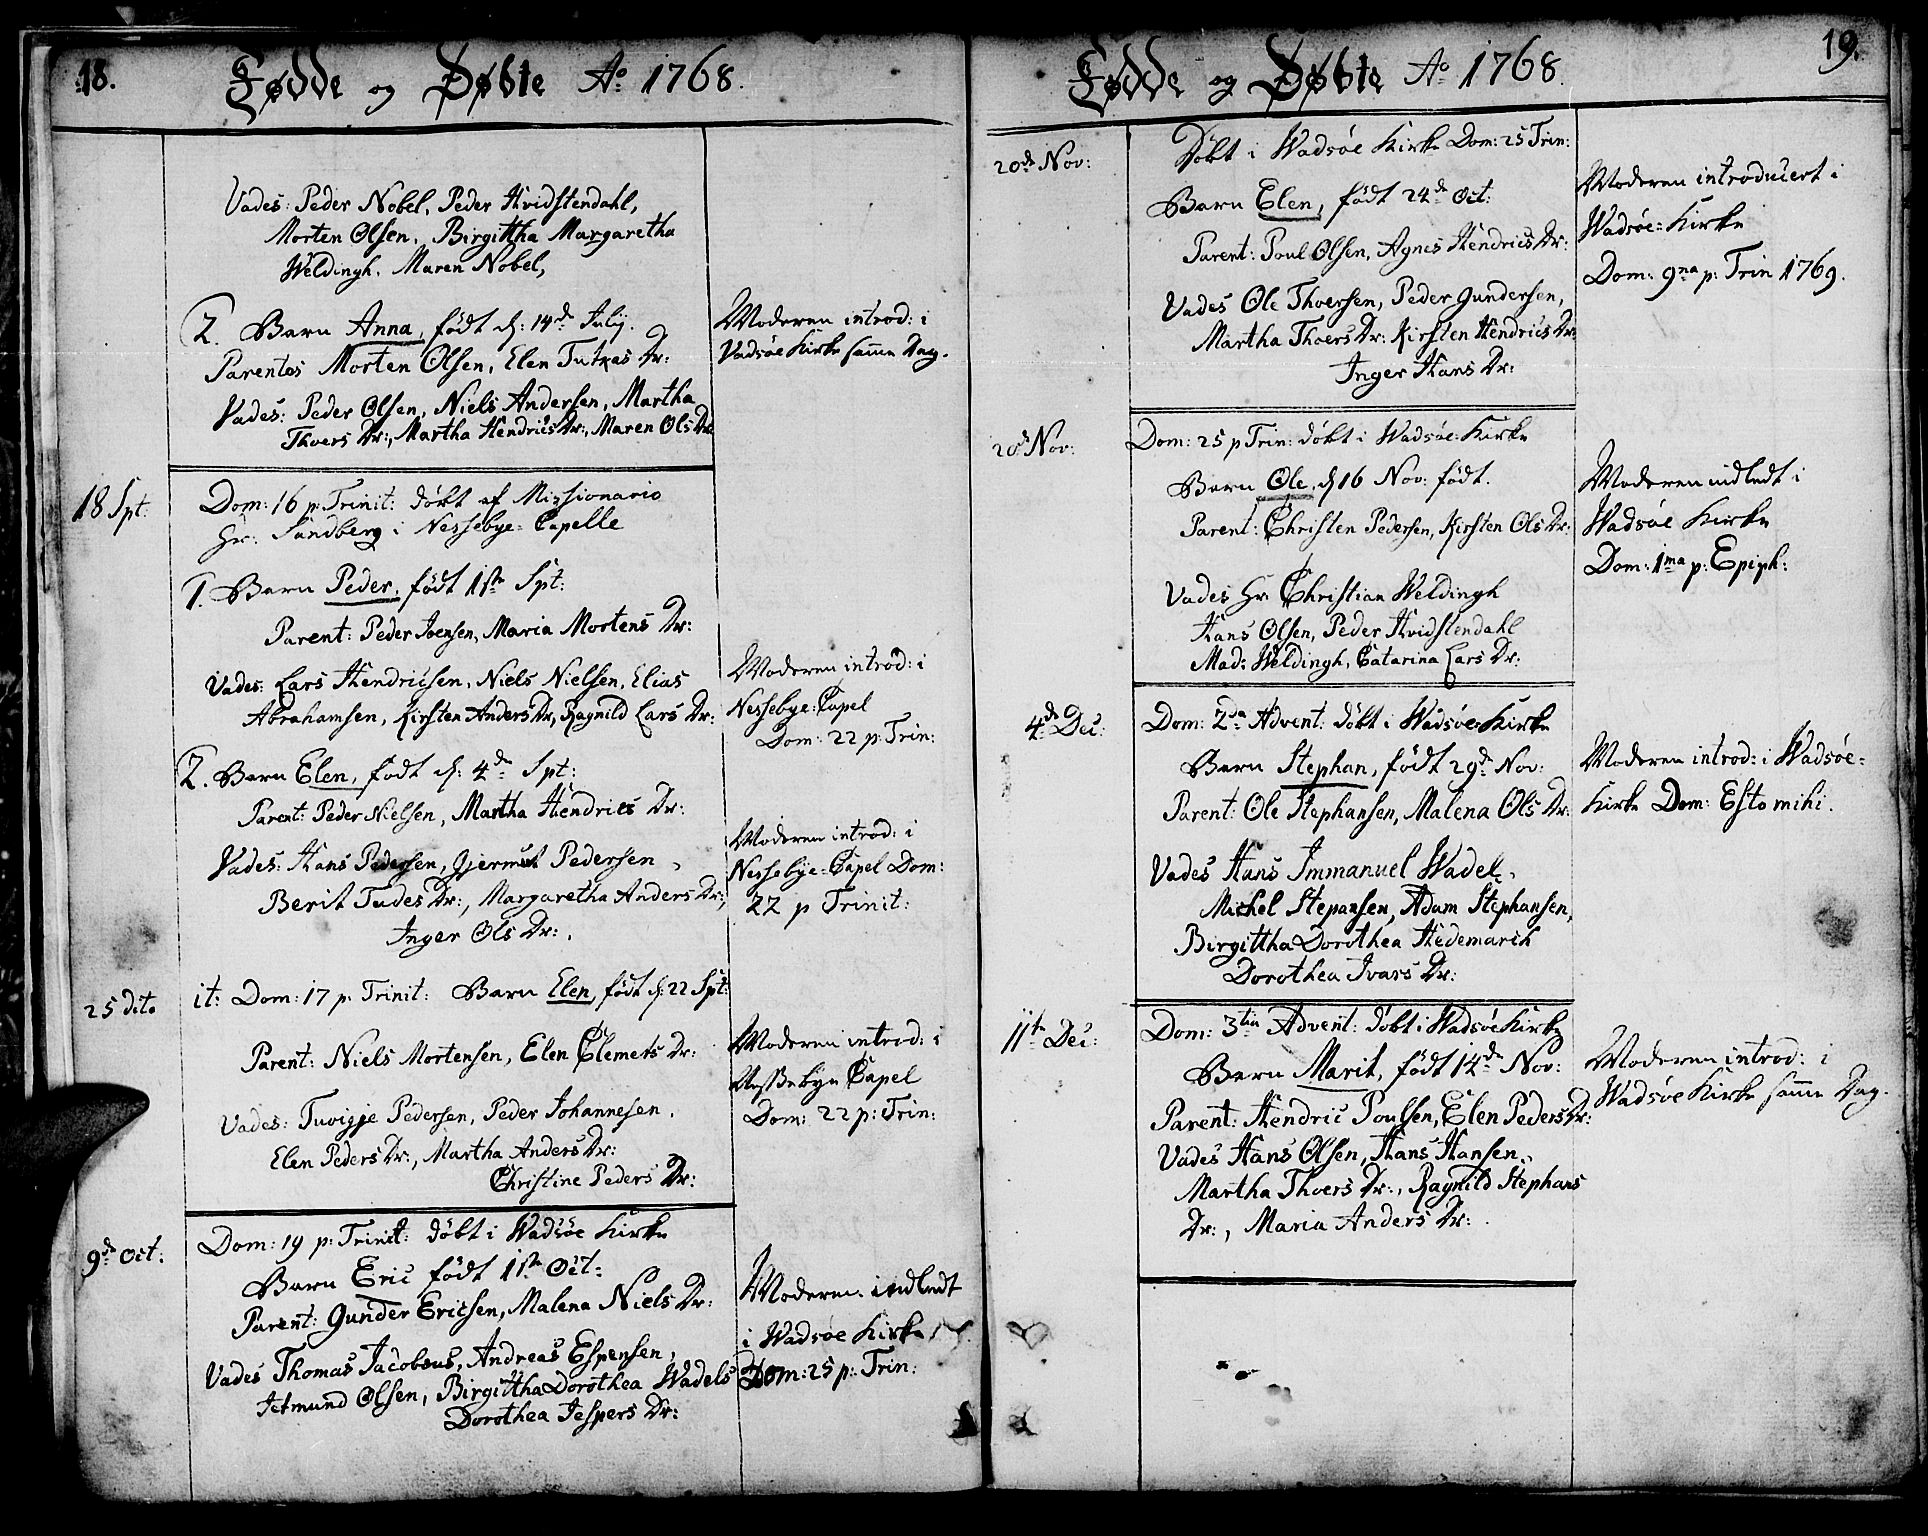 18.
Fødde og Døbte Ao 1768.
Vades: Peder Nobel, Peder Hvidstendahl,
Morten Olsen, Birgittha Margaretha
Weldingh, Maren Nobel,
2. Barn Anna, født d: 14de Julij.
Parentes Morten Olsen, Elen Dr:
Vades: Peder Olsen, Niels Andersen, Martha
Thoers Dr:, Martha Hendrics Dr:, Maren Ols Dr
Moderen introd: i
Vadsøe Kirke samme Dag.
18 Spt:
Dom: 16 p: Trinit: døbt af Missionario
Hr: Sandberg i Nessebye=Capelle
1. Barn Peder, født 1ste Spt:
Parent: Peder Joensen, Maria Mortens Dr:
Vades: Lars Hendricsen, Niels Nielsen, Elias
Abrahamsen, Kirsten Anders Dr, Ragnild Lars Dr:
Moderen introd: i
Nessebye=Capel
Dom: 22 p: Trin:
2. Barn Elen, født d: 4de Spt:
Parent: Peder Nielsen, Martha Hendrics Dr:
Vades: Hans Pedersen, Pedersen,
Berit Tudes Dr:, Margaretha Anders Dr:,
Inger Ols Dr:,
Moderen introd: i
Nessebye=Capel Dom:
22 p Trinit:
25 dito
it: Dom: 17 p: Trinit: Barn Elen, født d: 22 Spt:
Parent: Niels Mortensen, Elen Clemets Dr:
Vades: Pedersen, Peder Johannesen,
Elen Peders Dr:, Martha Anders Dr:
Christine Peders Dr:
Moderen introd: i
Nessebye Capel
Dom: 22 p: Trin:
9de Oct:
Dom: 19 p: Trinit: døbt i Wadsøe Kirke
Barn Eric født 1ste Oct:
Parent: Gunder Ericsen, Malena Niels Dr:
Vades Thomas Jacobsens, Andreas Espensen,
Olsen, Birgittha Dorothea Wadels
Dorothea Jespers Dr:
Moderen indledt
i Wadsøe Kirke
Dom: 25 p: Trin:
19.
Fødde og Døbte Ao 1768.
20de Nov:
Døbt i Wadsøe Kirke Dom: 25 Trin:
Barn Elen, født 24de Oct:
Parent: Poul Olsen, Agnes Hendrics Dr:
Vades Ole Thoersen, Peder Gundersen,
Martha Thoers Dr: Kirsten Hendrics Dr:
Inger Hans Dr:
Moderen introducert i
Wadsøe=Kirke
Dom: 9na p: Trin 1769.
20de Nov:
Dom: 25 p Trin: døbt i Wadsøe=Kirke
Barn Ole, d 16 Nov: født.
Parent: Christen Pedersen, Kirsten Ols Dr:
Vades Hr Christian Weldingh
Hans Olsen, Peder Hvidstendahl
Mad: Weldingh, Catarina Lars Dr:
Moderen indledt i
Wadsøe Kirke
Dom: 1ma p: Epiph:
4de Dec:
Dom: 2da Advent: døbt i Wadsøe Kirke
Barn Stephan, født 29de Nov:
Parent: Ole Stephansen, Malena Ols Dr:
Vades Hans Immanuel Wadel,
Michel Stepansen, Adam Stephansen,
Birgittha Dorothea Hedemarch
Dorothea Ivars Dr:
Moderen introd: i Wadsøe=
Kirke Dom: Esto mihi.
11te Dec:
Dom: 3tia Advent: døbt i Wadsøe Kirke
Barn Marit, født 14de Nov:
Parent: Hendric Poulsen, Elen Peders Dr:
Vades Hans Olsen, Hans Hansen,
Martha Thoers Dr:, Ragnild Stephans
Dr:, Maria Anders Dr:
Moderen introd: i
Wadsøe Kirke samme Dag.